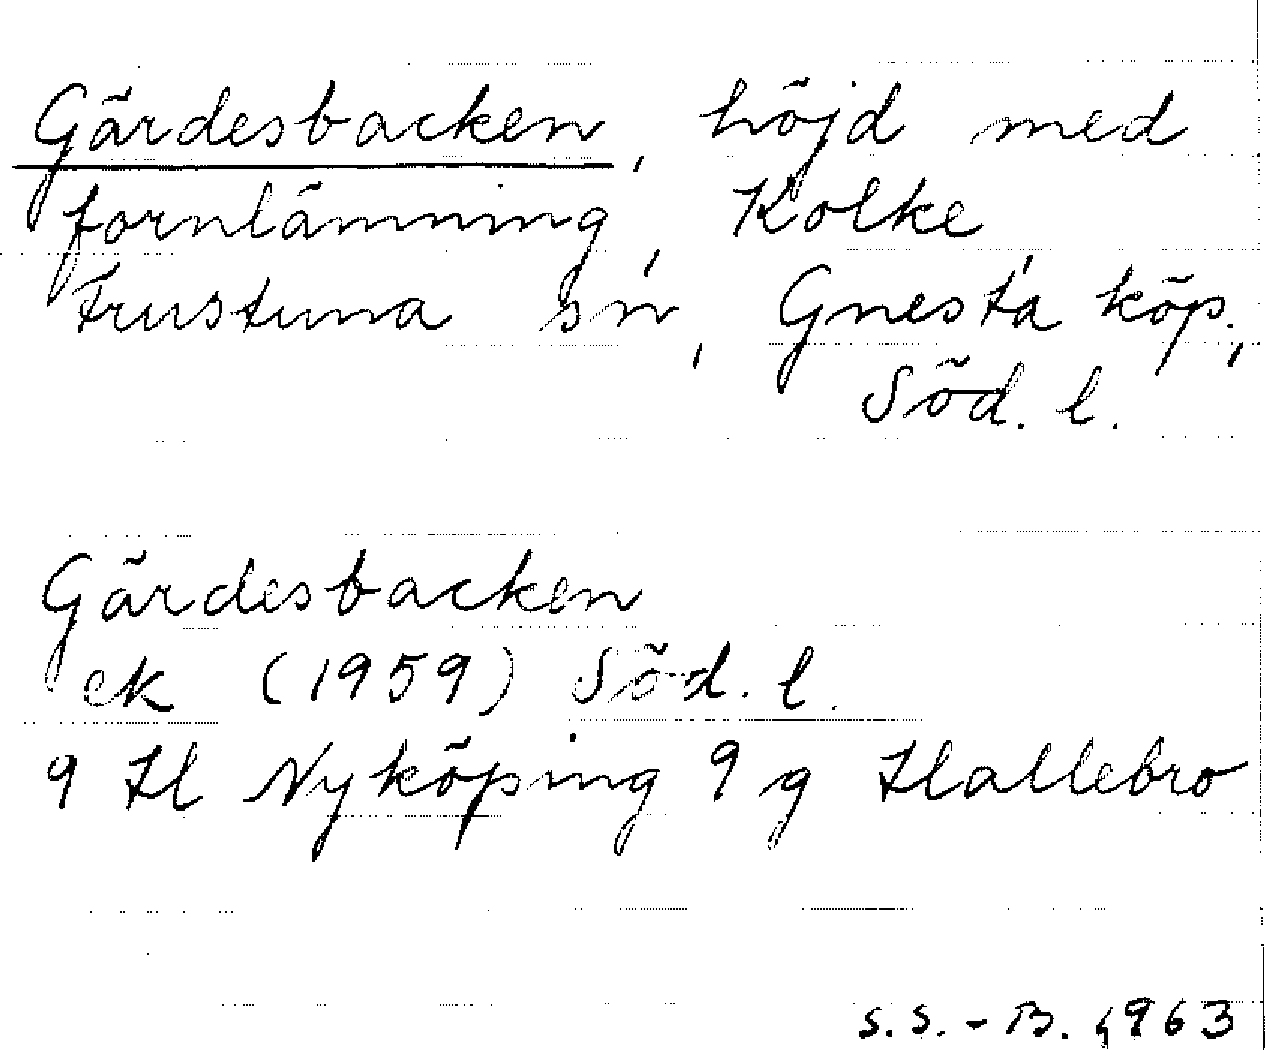 Gärdesbacken, höjd med
fornlämning, Kolke,
Frustuna sn, Gnesta köp.,
Söd. l.
Gärdesbacken
ek (1959) Söd. l.
9 H Nyköping 9 g Hallebro
S.S.-B. 1963